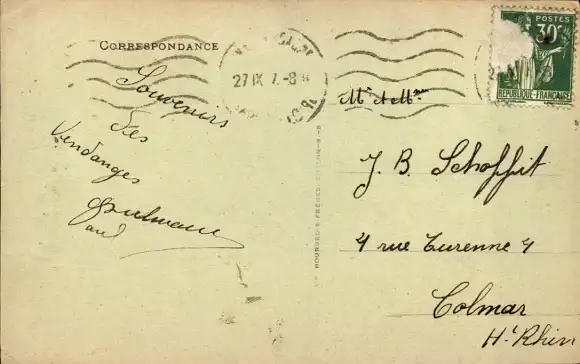 CORRESPONDANCE
Souvenirs
des
Vendanges
27 IX 7.-8
POSTES
30
RÉPUBLIQUE-FRANÇAISE
Mr et Mme
J. B. Schoffit
4 rue Turenne 4
Colmar
Ht Rhin